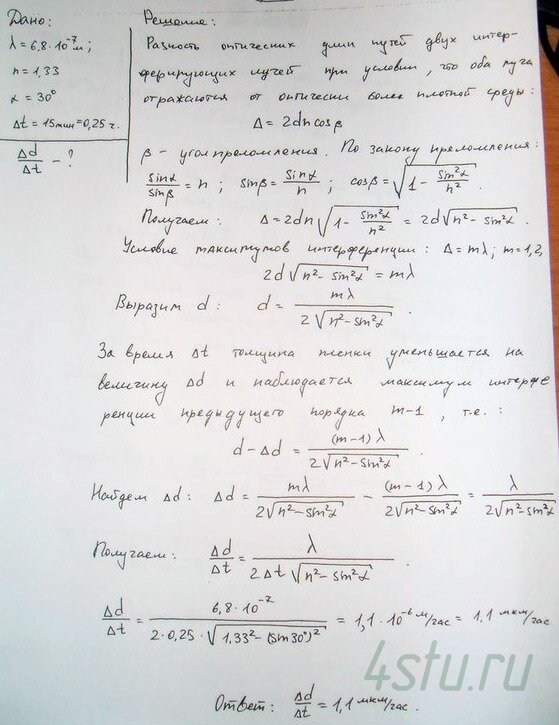 Дано:
λ = 6,8·10⁻⁷ м;
n = 1,33
α = 30°
Δt = 15мин = 0,25 ч.
Δd/Δt - ?
Решение:
Разность оптических длин путей двух интер-
ферирующих лучей при условии, что оба луча
отражаются от оптически более плотной среды:
Δ = 2dn cosβ
β - угол преломления. По закону преломления:
sinα/sinβ = n ; sinβ = sinα/n ; cosβ = √(1 - sin²α/n²) .
Получаем: Δ = 2dn√(1 - sin²α/n²) = 2d√(n² - sin²α) .
Условие максимумов интерференции: Δ = mλ; m = 1,2,
2d√(n² - sin²α) = mλ
Выразим d: d = mλ/(2√(n² - sin²α)) .
За время Δt толщина пленки уменьшается на
величину Δd и наблюдается максимум интерфе
ренции предыдущего порядка m-1, т.е.:
d - Δd = (m-1)λ/(2√(n² - sin²α))
Найдем Δd: Δd = mλ/(2√(n² - sin²α)) - (m-1)λ/(2√(n² - sin²α)) = λ/(2√(n² - sin²α))
Получаем: Δd/Δt = λ/(2Δt√(n² - sin²α)) .
Δd/Δt = 6,8·10⁻⁷/(2·0,25·√(1,33² - (sin30°)²)) = 1,1·10⁻⁶ м/час = 1,1 мкм/час
4stu.ru
Ответ: Δd/Δt = 1,1 мкм/час.